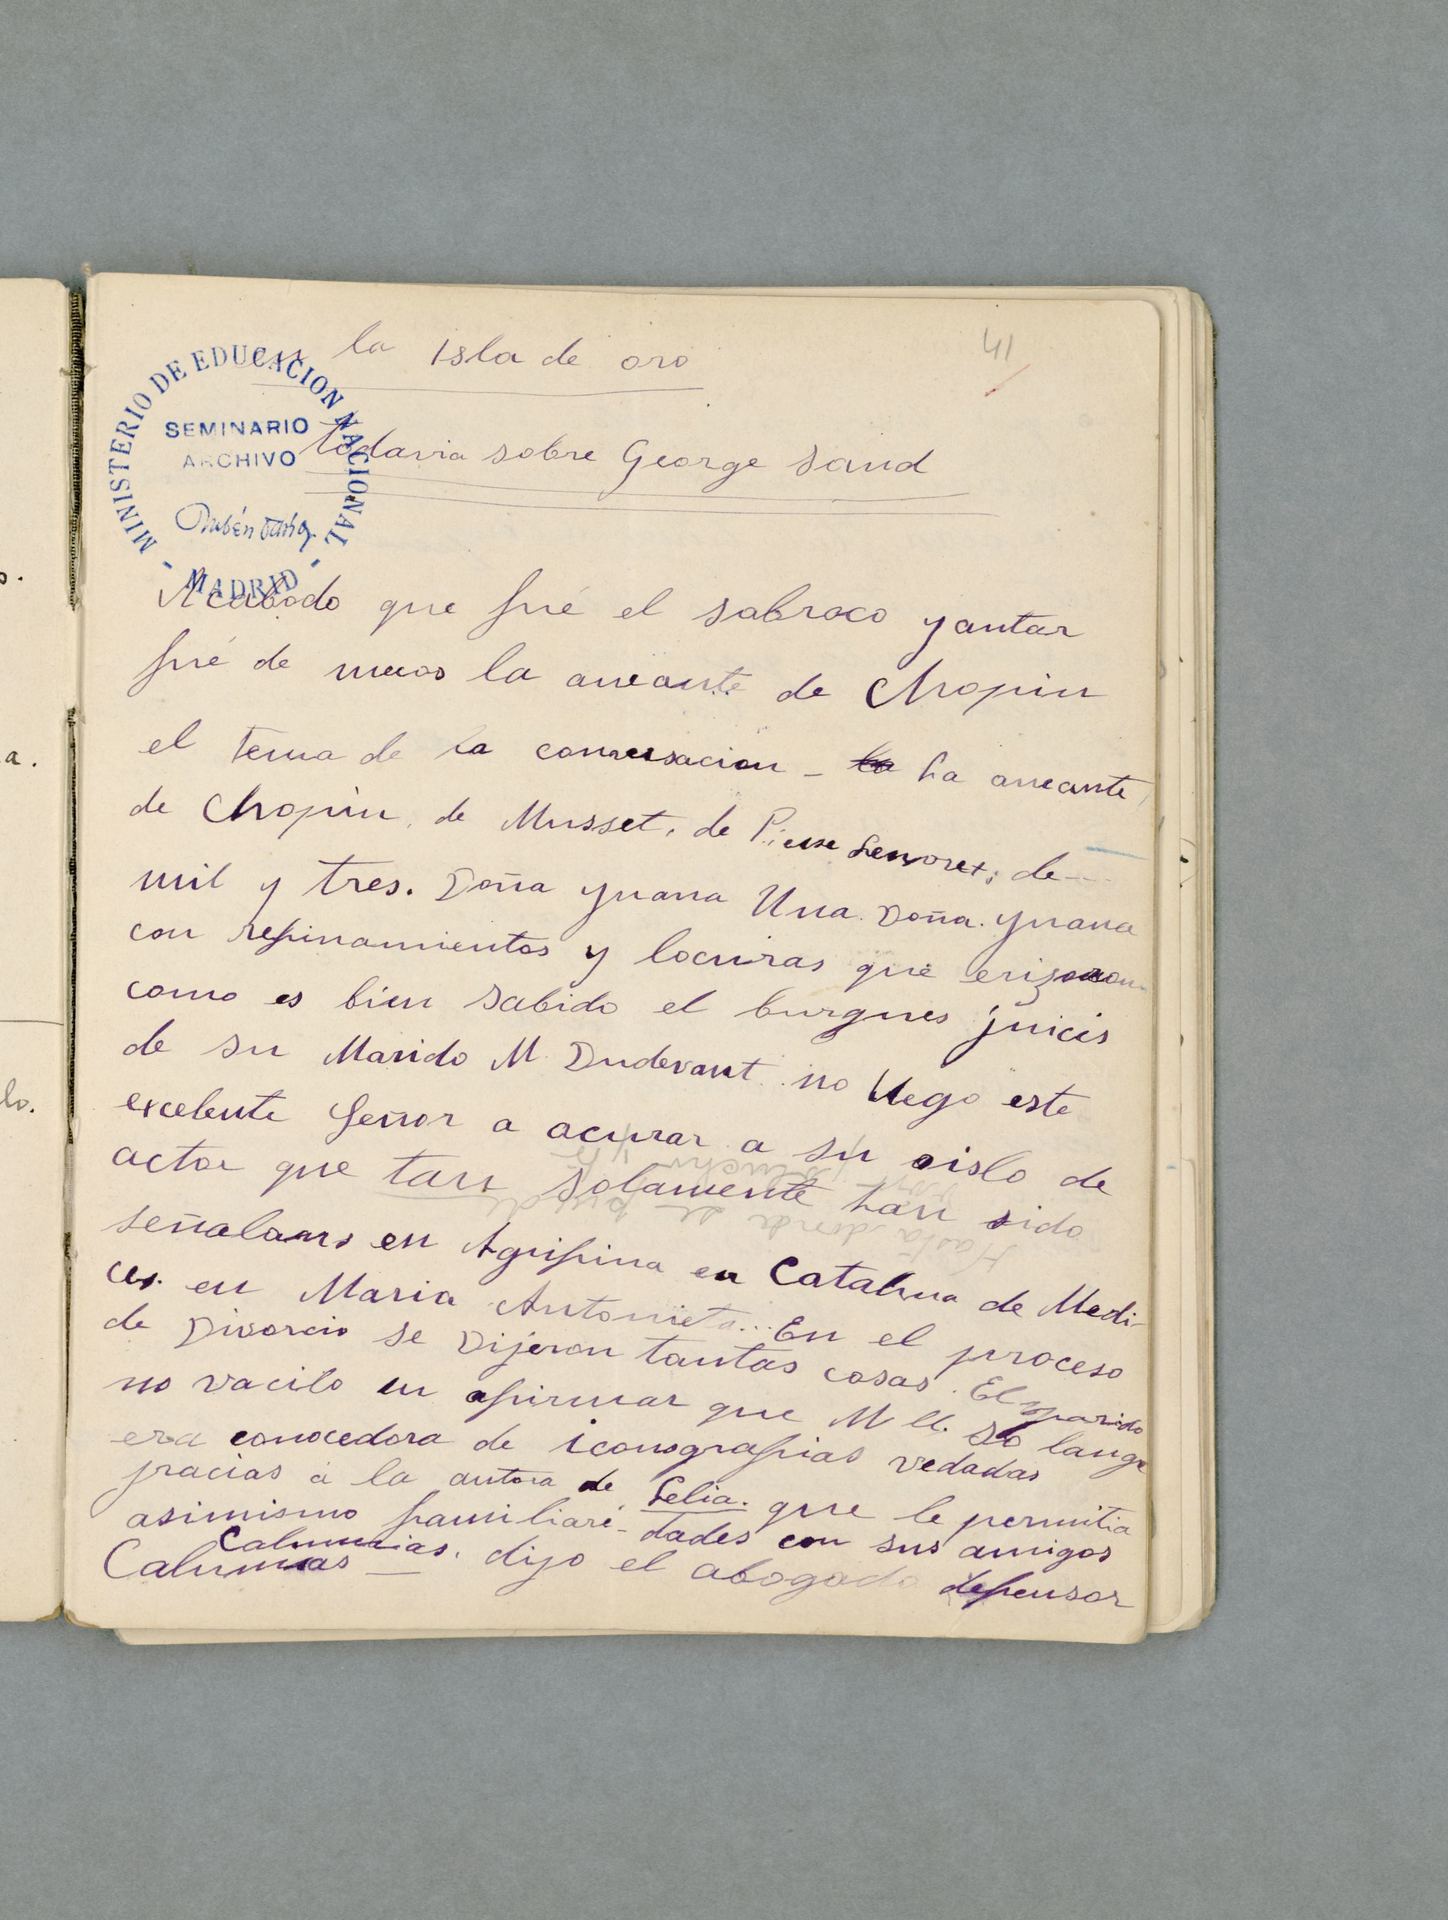 en la isla de oro
41
MINISTERIO DE EDUCACION NACIONAL
SEMINARIO
ARCHIVO
Rubén Darío
- MADRID -
todavia sobre George Sand
Acabodo que fué el sabroco yantar
fué de nuevo la amante de Chopin
el tema de la conversacion - la La amante
de Chopin, de Musset, de Pierre Lerroux; de
mil y tres. Doña Juana Una Doña Juana
con refinamientos y locuras que erizaron
como es bien sabido el burgues juicio
de su Marido M. Dudevant no llego este
excelente Señor a acusar a su oislo de
actos que tan solamente han sido
señalados en Agripina en Catalina de Medi-
ces en Maria Antonieta... En el proceso
de Divorcio se Dijeron tantas cosas. El marido
no vacilo en afirmar que Mlle. So lange
era conocedora de iconografias vedadas
gracias á la autora de Lelia. que le permitia
asimismo familiari-dades con sus amigos
Calumnias.
Calumnias — dijo el abogado defensor
Hasta donde se puede
o.
a.
lo.